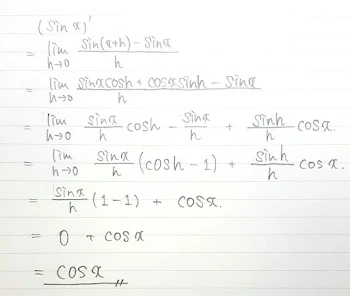 (sin x)'
= lim h→0 sin(x+h) - sin x / h
= lim h→0 sin x cosh + cos x sinh - sin x / h
= lim h→0 sin x / h cosh - sin x / h + sinh / h cos x.
= lim h→0 sin x / h (cosh - 1) + sinh / h cos x.
= sin x / h (1-1) + cos x.
= 0 + cos x
= cos x